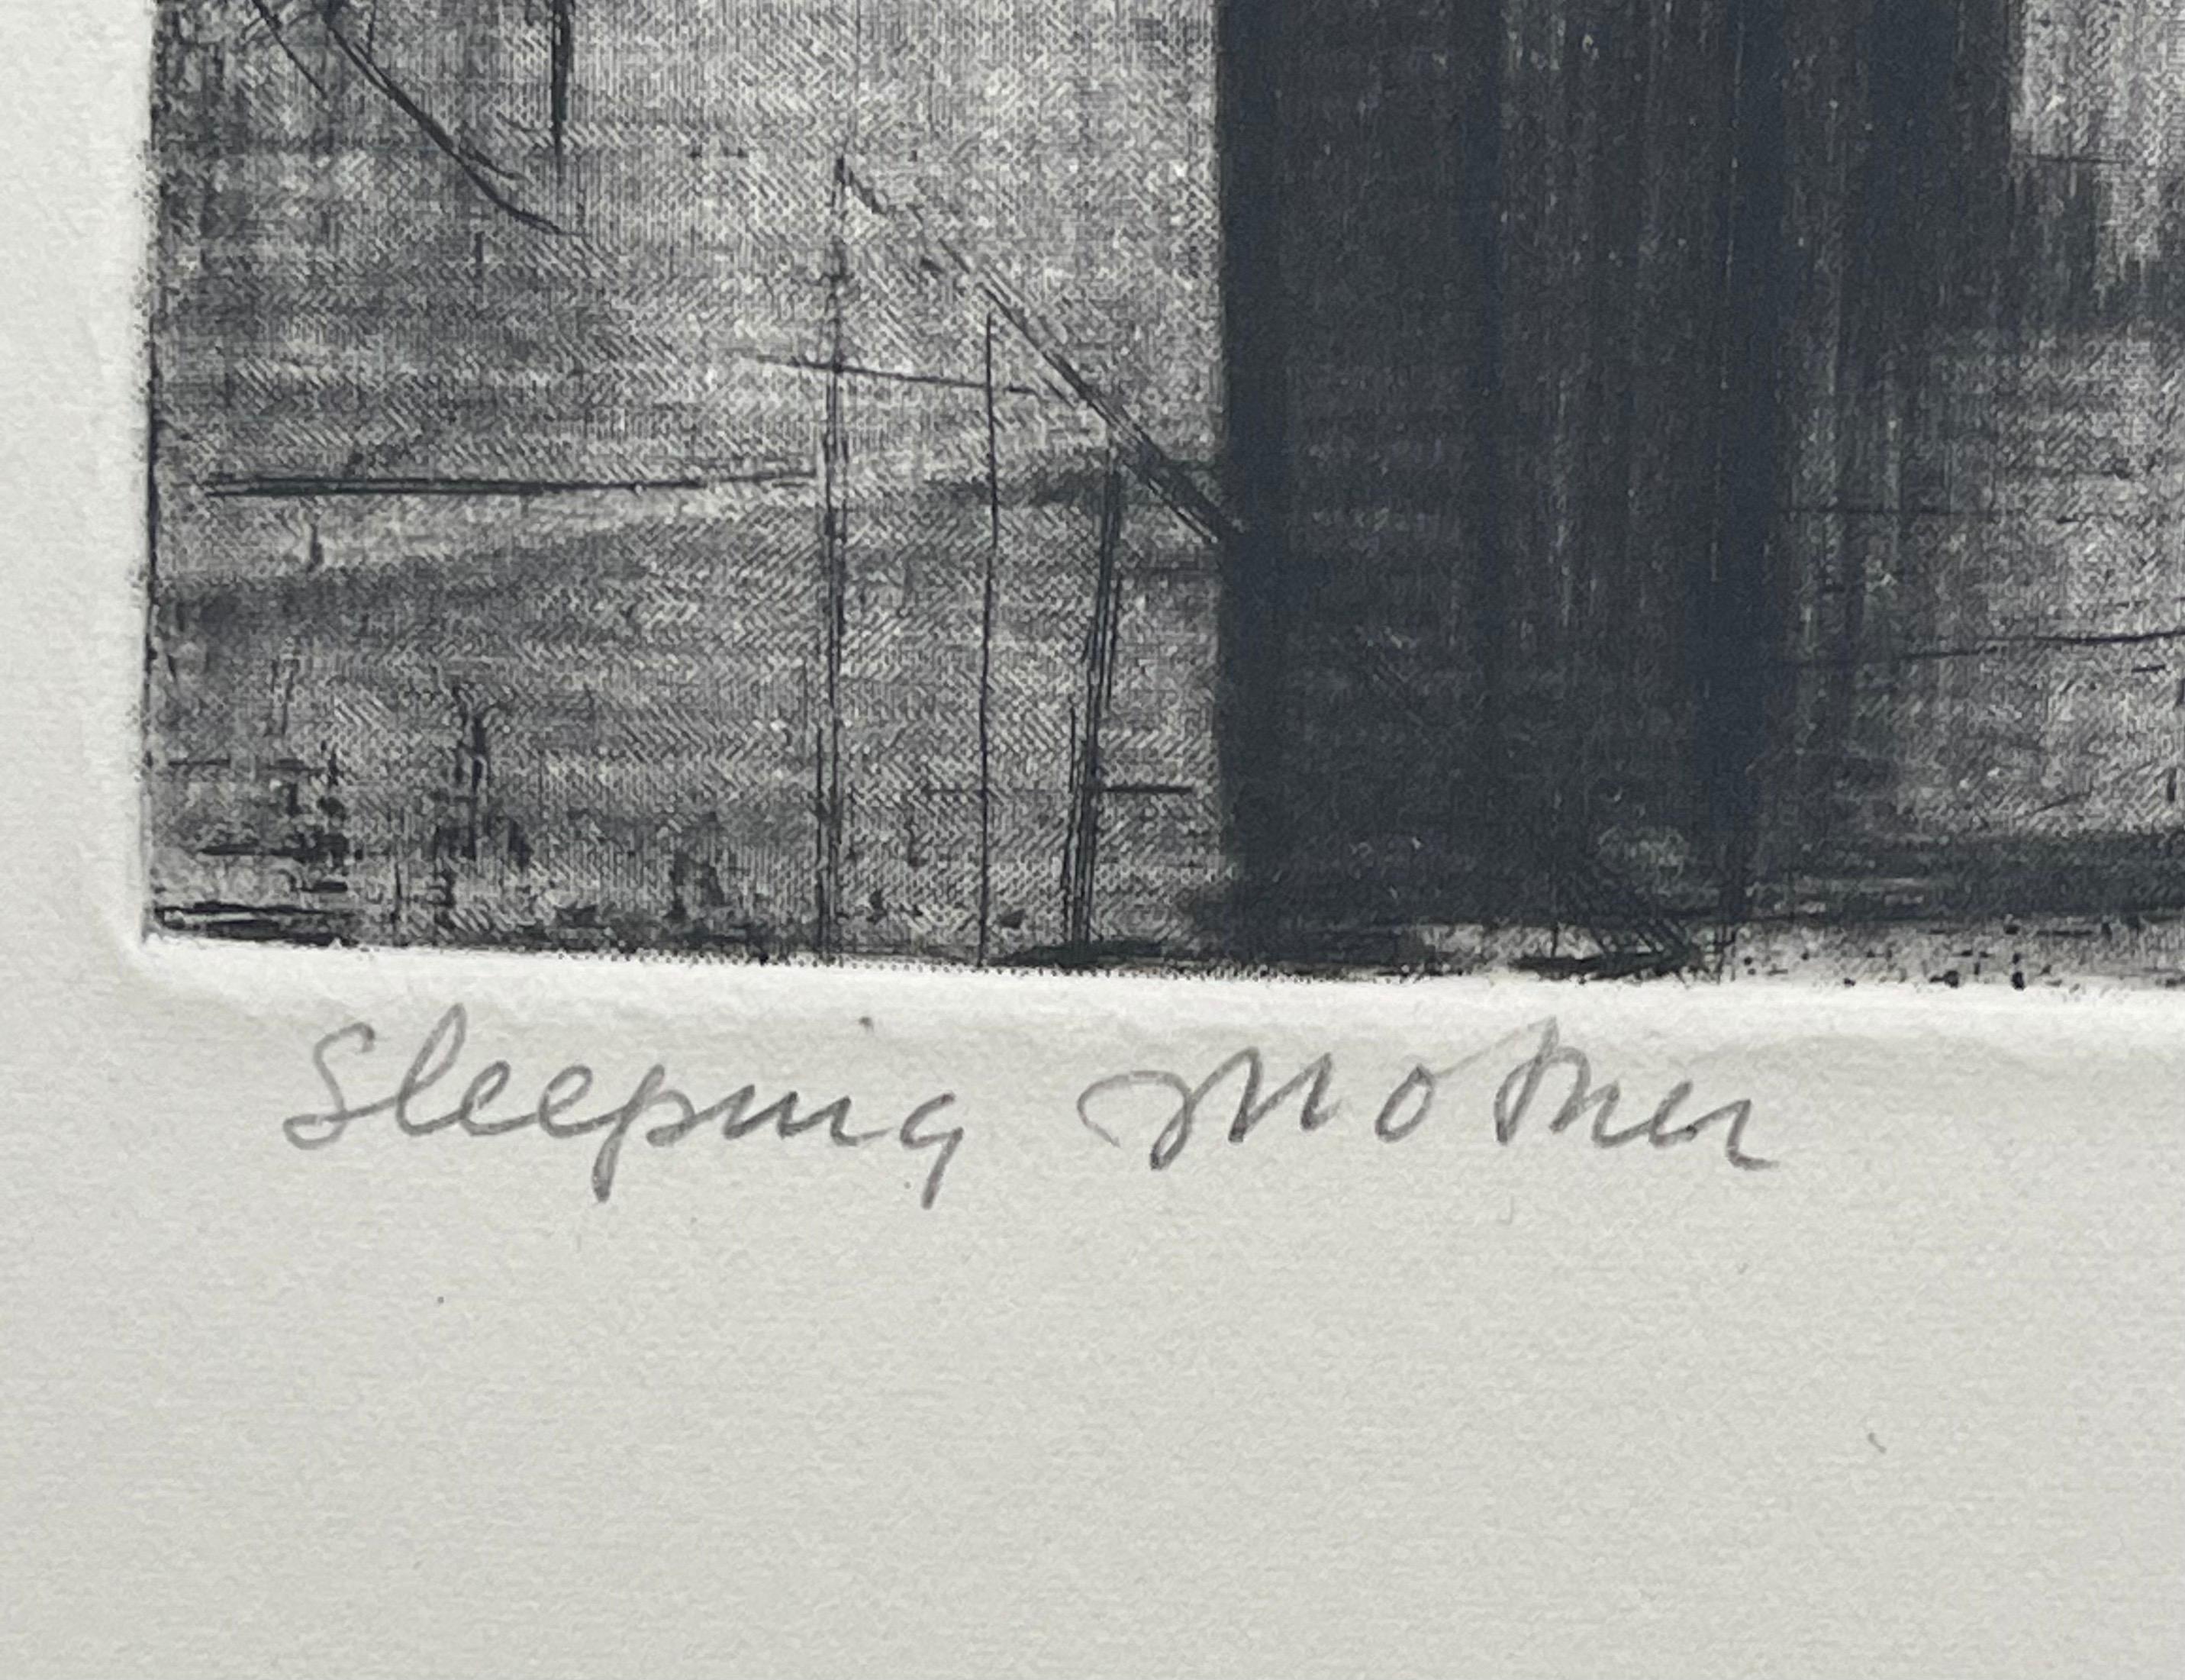 Sleeping Mother